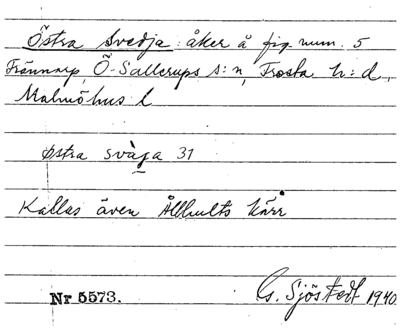 Östra Svedja: åker å fig. num. 5
Trännarp, Ö-Sallerups s:n, Frosta h:d,
Malmöhus l
østra svàga 31
Kallas även Ållhults kärr
Nr 5573. G. Sjöstedt 1940.